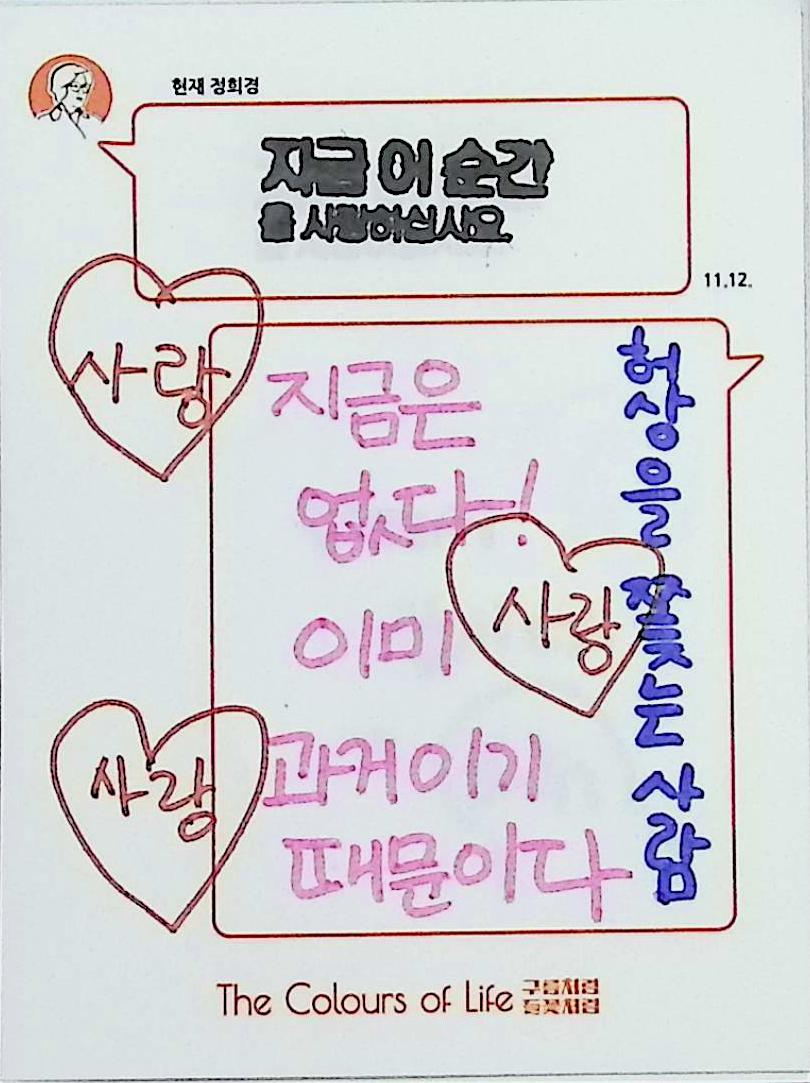 현재 정희경
지금 이 순간
을 사랑하십시오
11.12.
사랑
지금은
없다!
이미
사랑
사랑
과거이기
때문이다
허상을 쫓는 사람
The Colours of Life 구름처럼
들꽃처럼